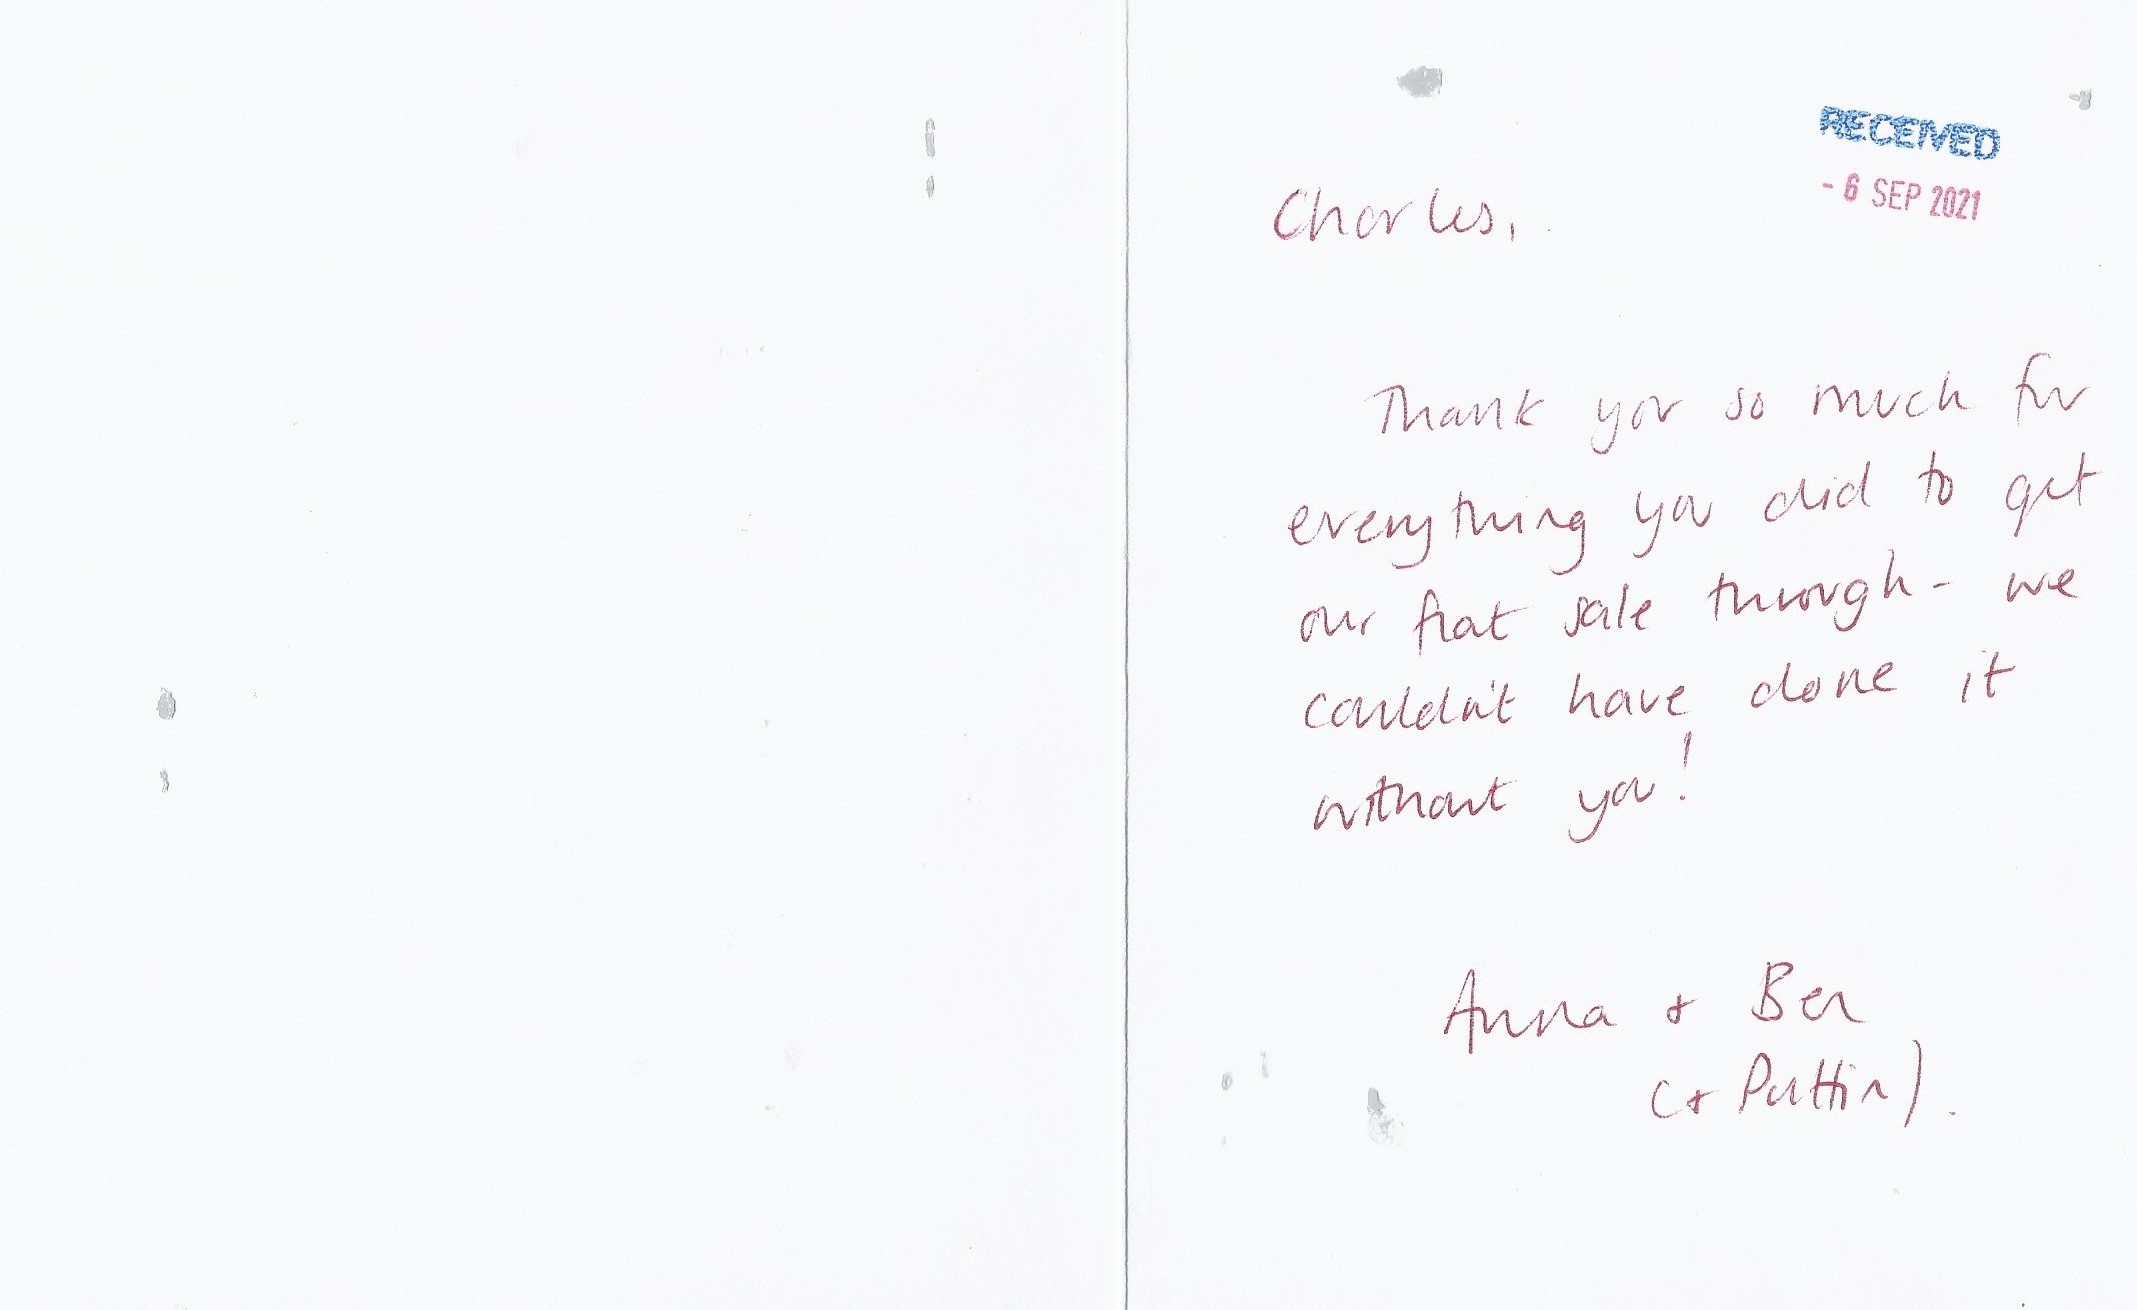 RECEIVED
- 6 SEP 2021
Charles,
Thank you so much for
everything you did to get
our flat sale through - we
couldn't have done it
without you!
Anna + Ben
(+ Puffin).